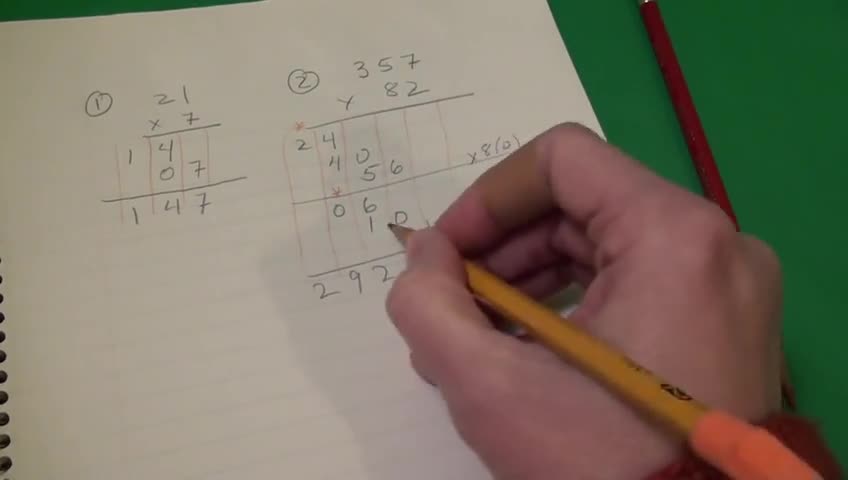 ①
21
x 7
1 4
0 7
1 4 7
②
357
x 82
*
2 4
4 0
5 6
x8(0)
*
0 6
1 0
2 9 2